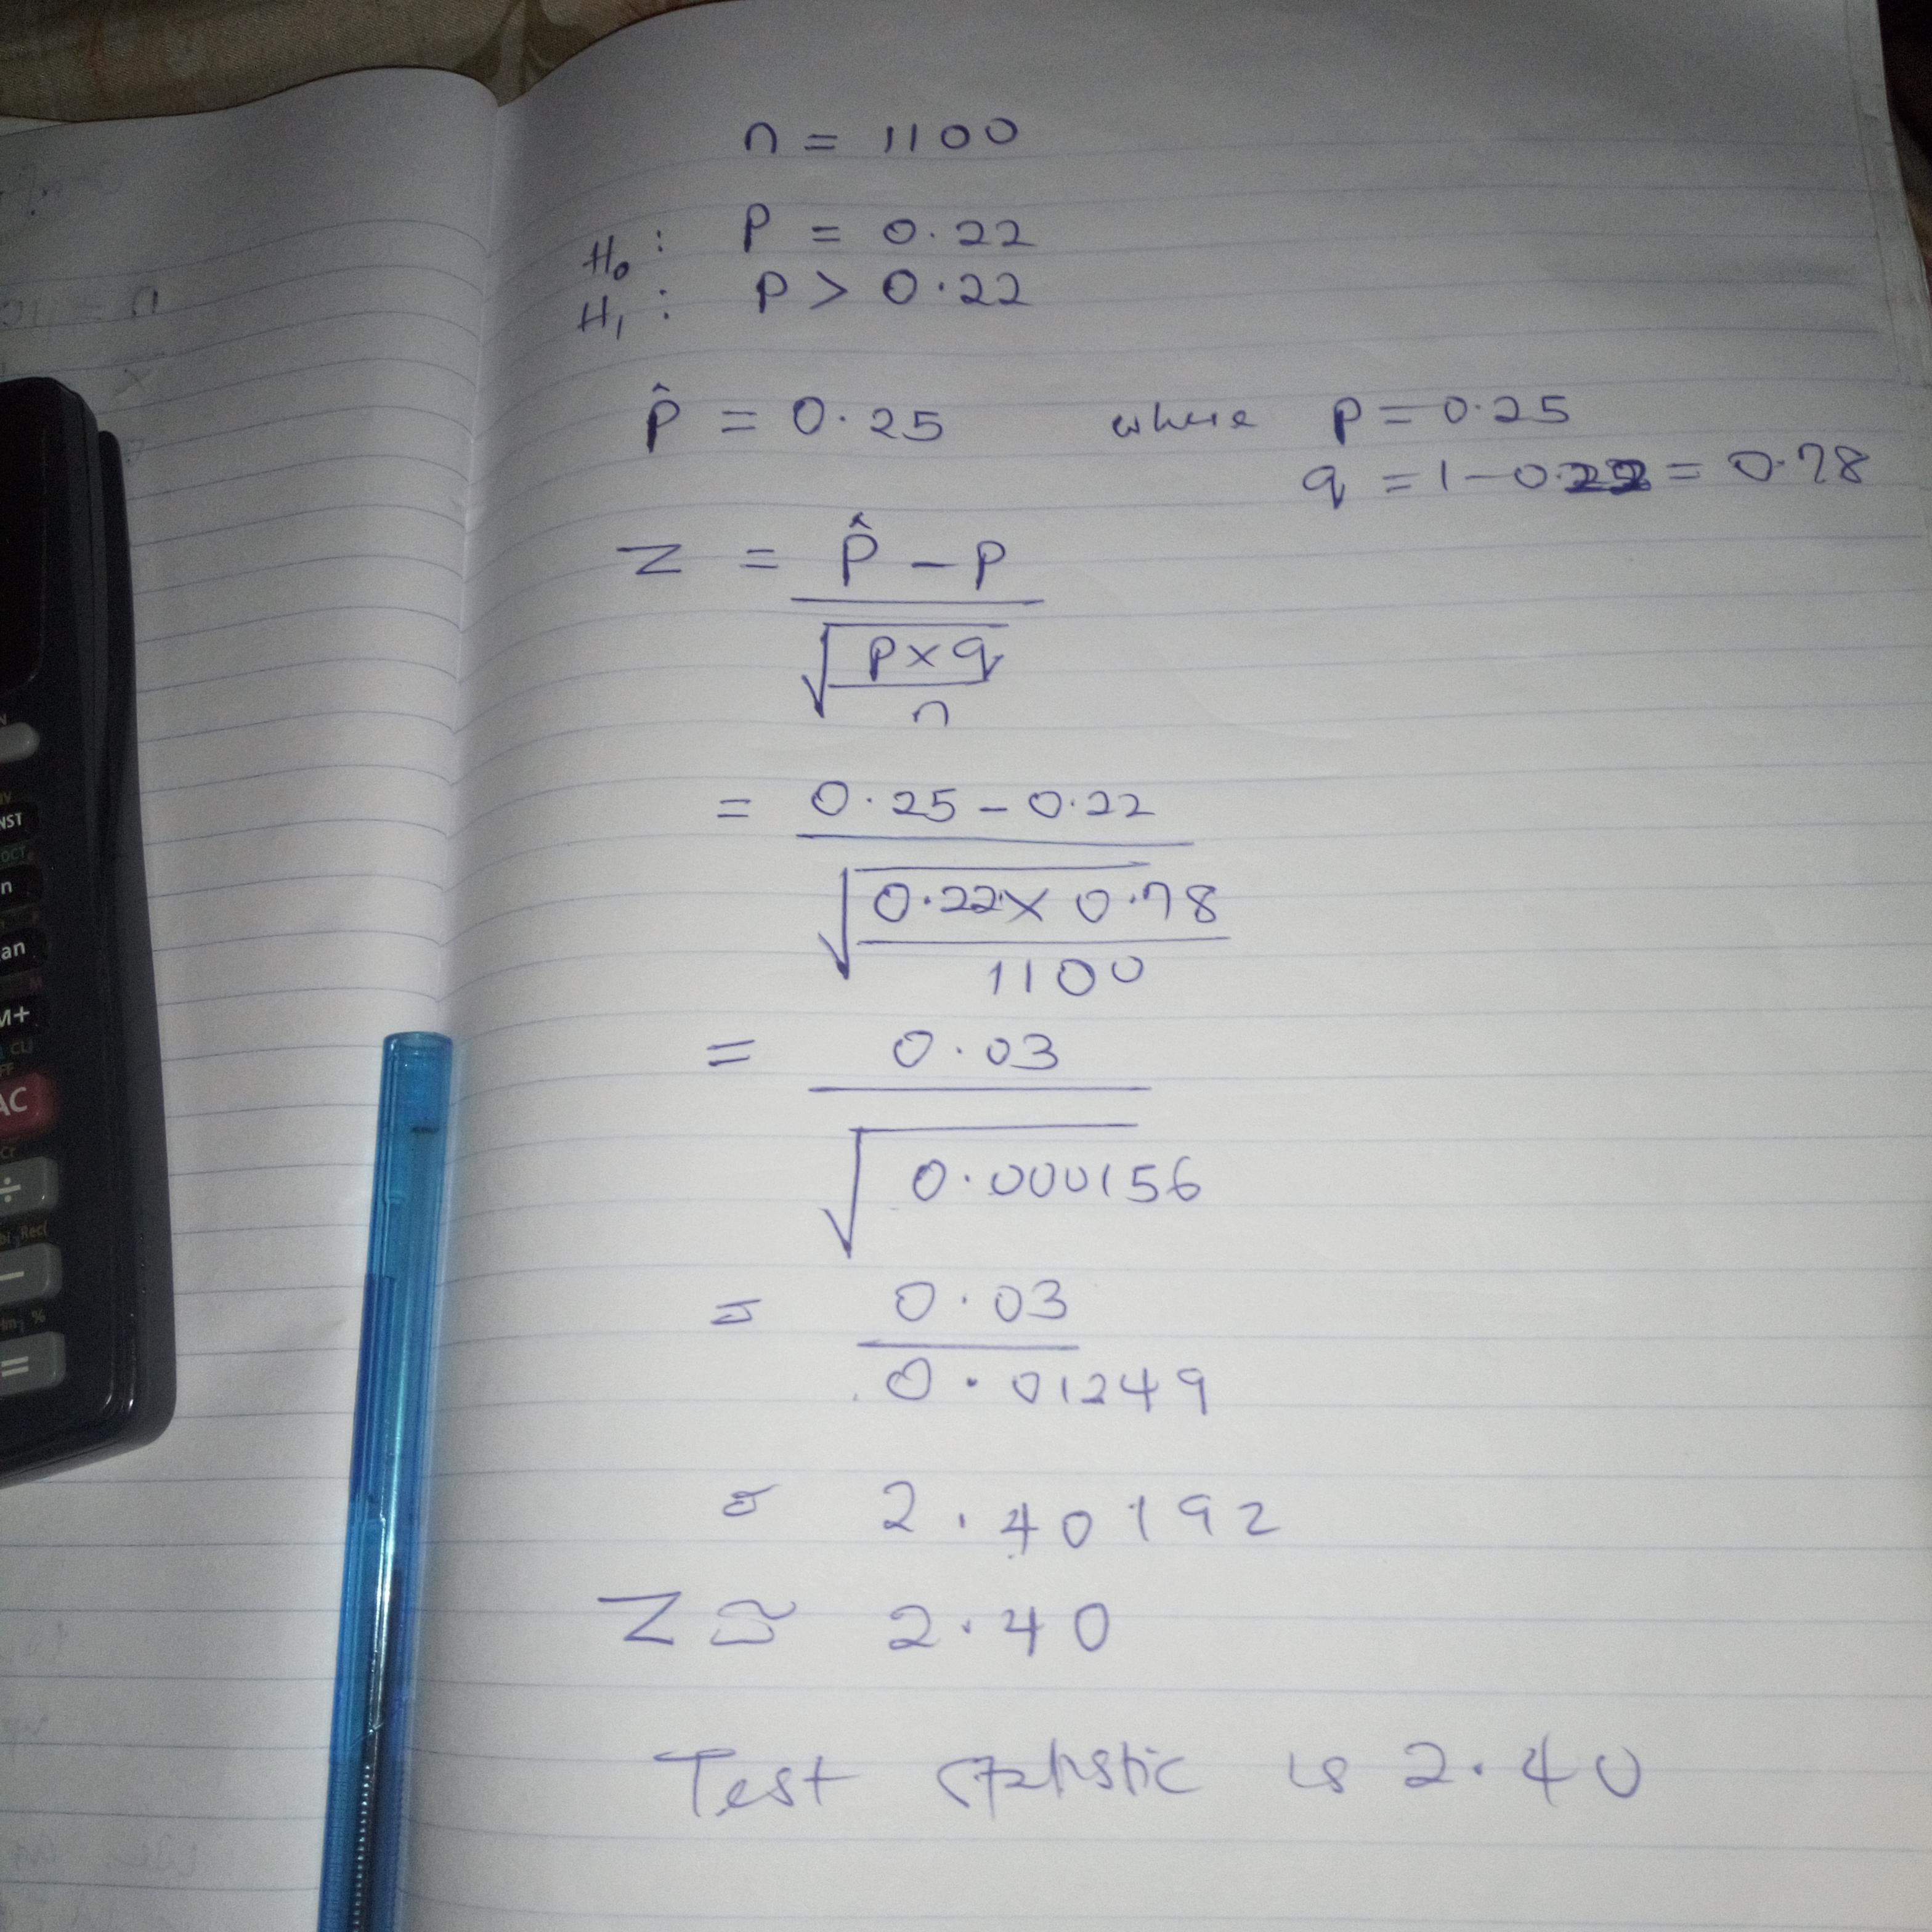 n = 1100
H₀ : P = 0.22
H₁ : P > 0.22
p̂ = 0.25 where p = 0.25
q = 1 - 0.22 = 0.78
Z = p̂ - p
√ p x q
n
= 0.25 - 0.22
√ 0.22 x 0.78
1100
= 0.03
√ 0.000156
= 0.03
0.01249
= 2.40192
Z ≅ 2.40
Test statistic is 2.40
NST
OCT
an
M
M+
CLl
AC
÷
Rec(
−
%
=